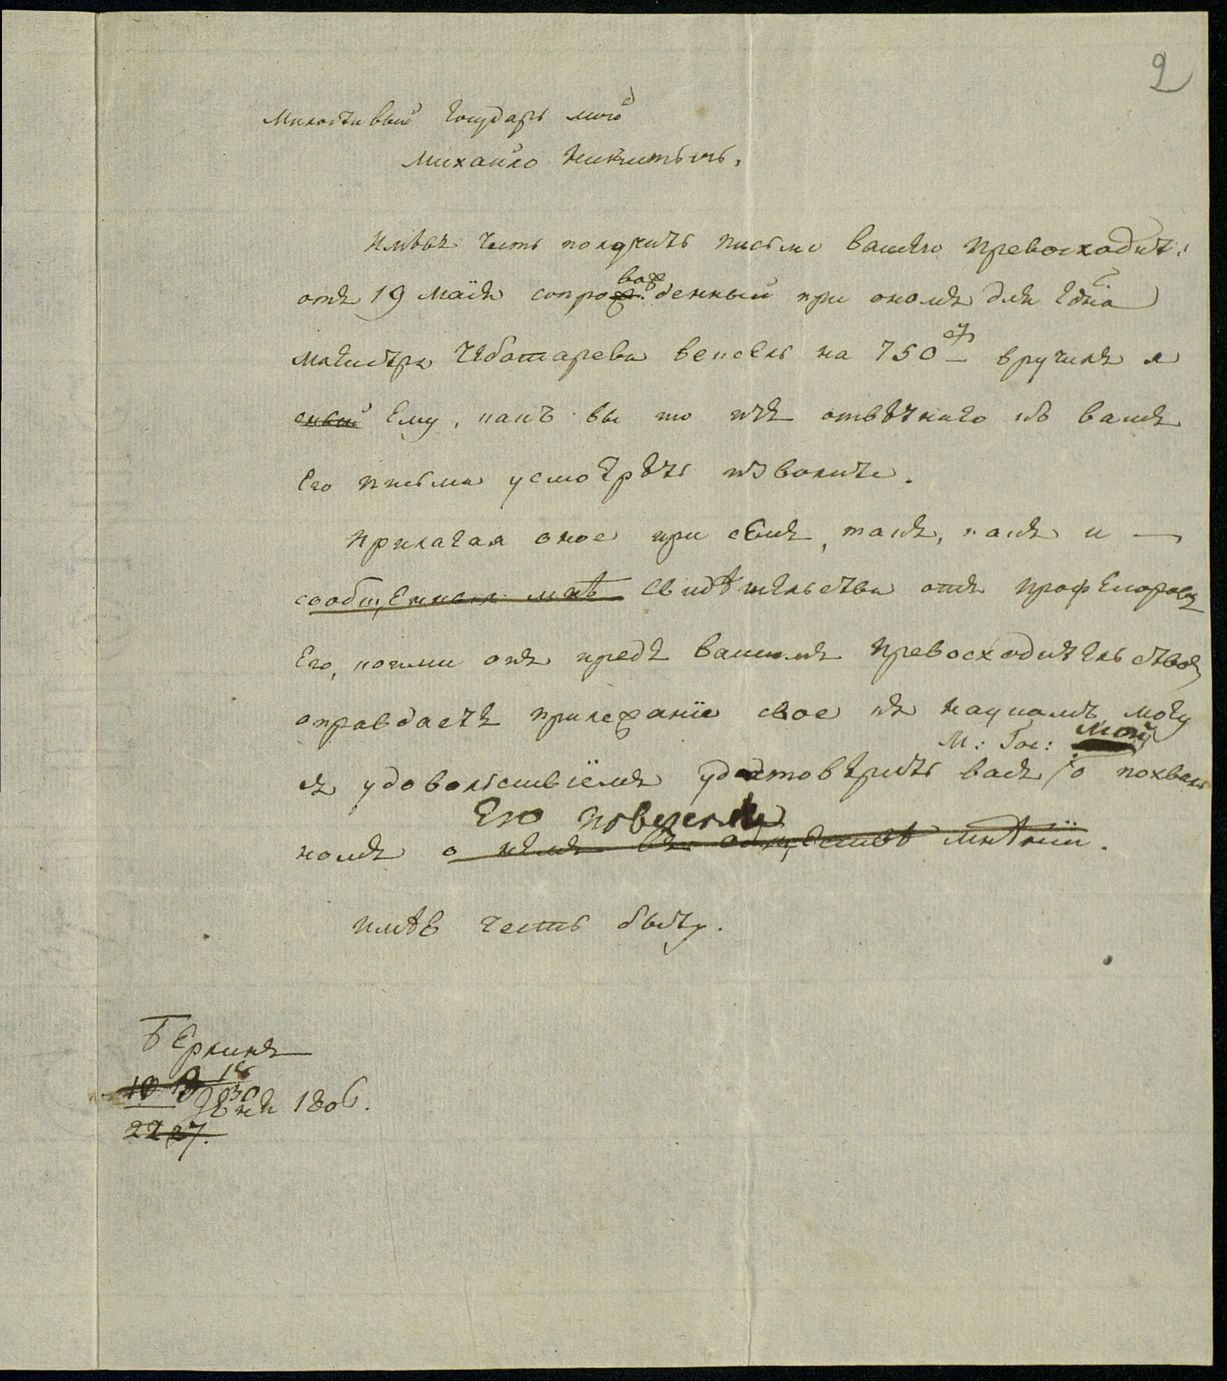 2
Милостивый Государь мой
Михайло Никитичь,
Имѣвъ честь получить письмо вашего превосходит:
отъ 19 Маїя сопровож денный при ономъ для Гдна
магистра Чеботарева вексель на 750 вручилъ я
оный Ему, какъ вы то изъ отвѣтнаго къ вамъ
Его письма усмотрѣть изволите.
Прилагая оное при семъ, такъ, какъ и —
сообщенныя мнѣ свидѣтельства отъ профессоровъ
Его, коими онъ предъ вашимъ превосходительствомъ
оправдаетъ прилежанїе свое къ наукамъ, могу
М: Гос: мой
съ удовольствїемъ удостовѣрить васъ о похваль
Его поведенїи
номъ о немъ въ обществѣ мнѣнїи.
имѣю честь быть.
Берлинъ
18
30
Їюня 1806.
22 27.